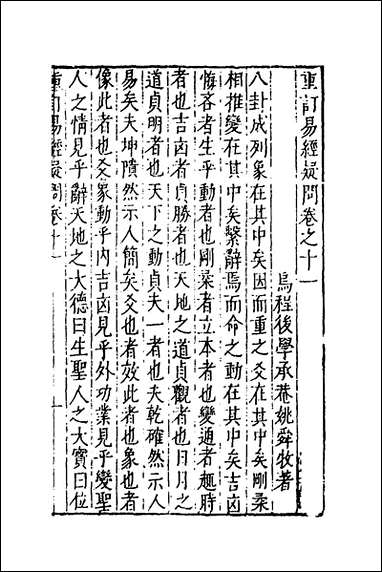 重訂易經疑問卷之十一
烏程後學承菴姚舜牧著
八卦成列象在其中矣因而重之爻在其中矣剛柔
相推變在其中矣繫辭焉而命之動在其中矣吉凶
悔吝者生乎動者也剛柔者立本者也變通者趣時
者也吉凶者貞勝者也天地之道貞觀者也日月之
道貞明者也天下之動貞夫一者也夫乾確然示人
易矣夫坤隤然示人簡矣爻也者效此者也象也者
像此者也爻象動乎內吉凶見乎外功業見乎變聖
人之情見乎辭天地之大德曰生聖人之大寶曰位
重訂易經疑問卷十一